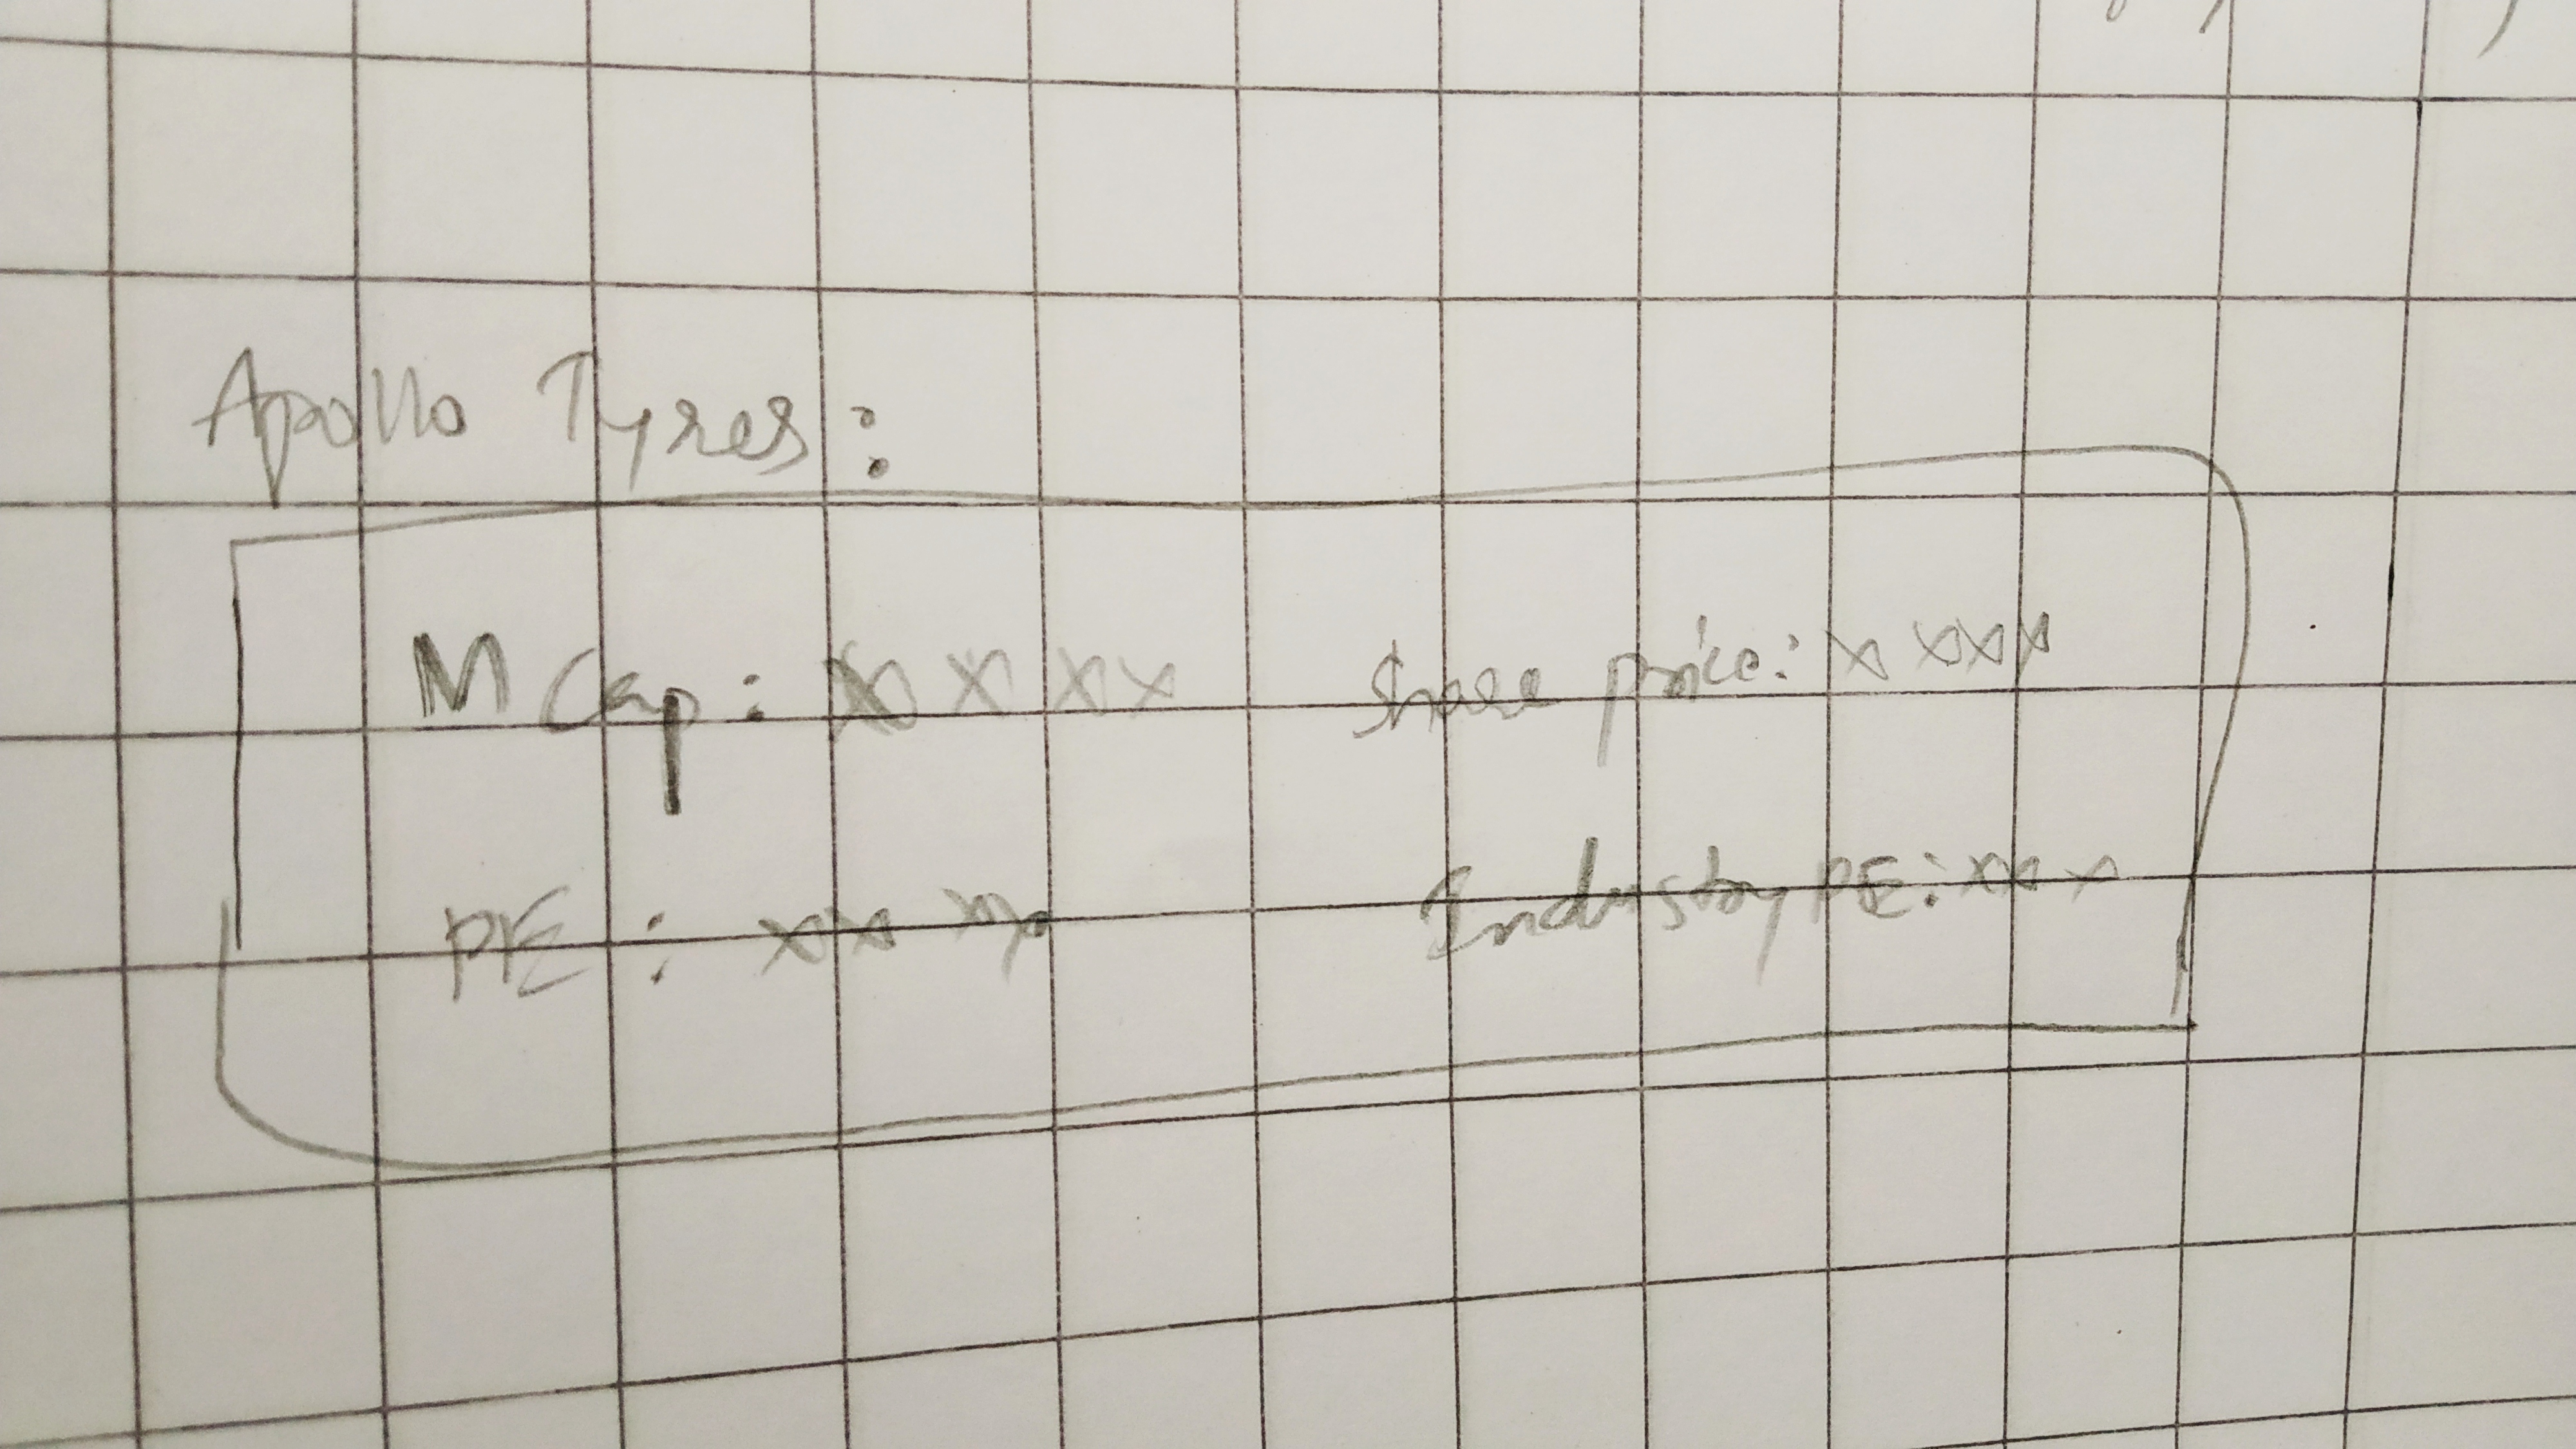 Apollo Tyres:
M Cap: XXXX Share price: XXXX
PE: XXXX Industry PE: XXX